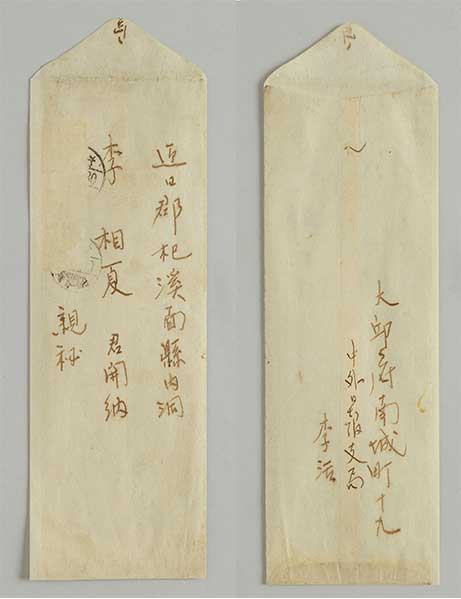 迎日郡杞溪面縣內洞
李相夏君開納
親秘
大邱府南城町十九
中外日報支局
李活